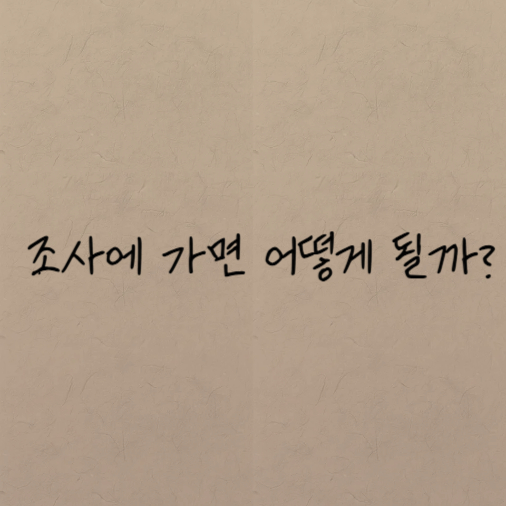 조사에 가면 어떻게 될까?